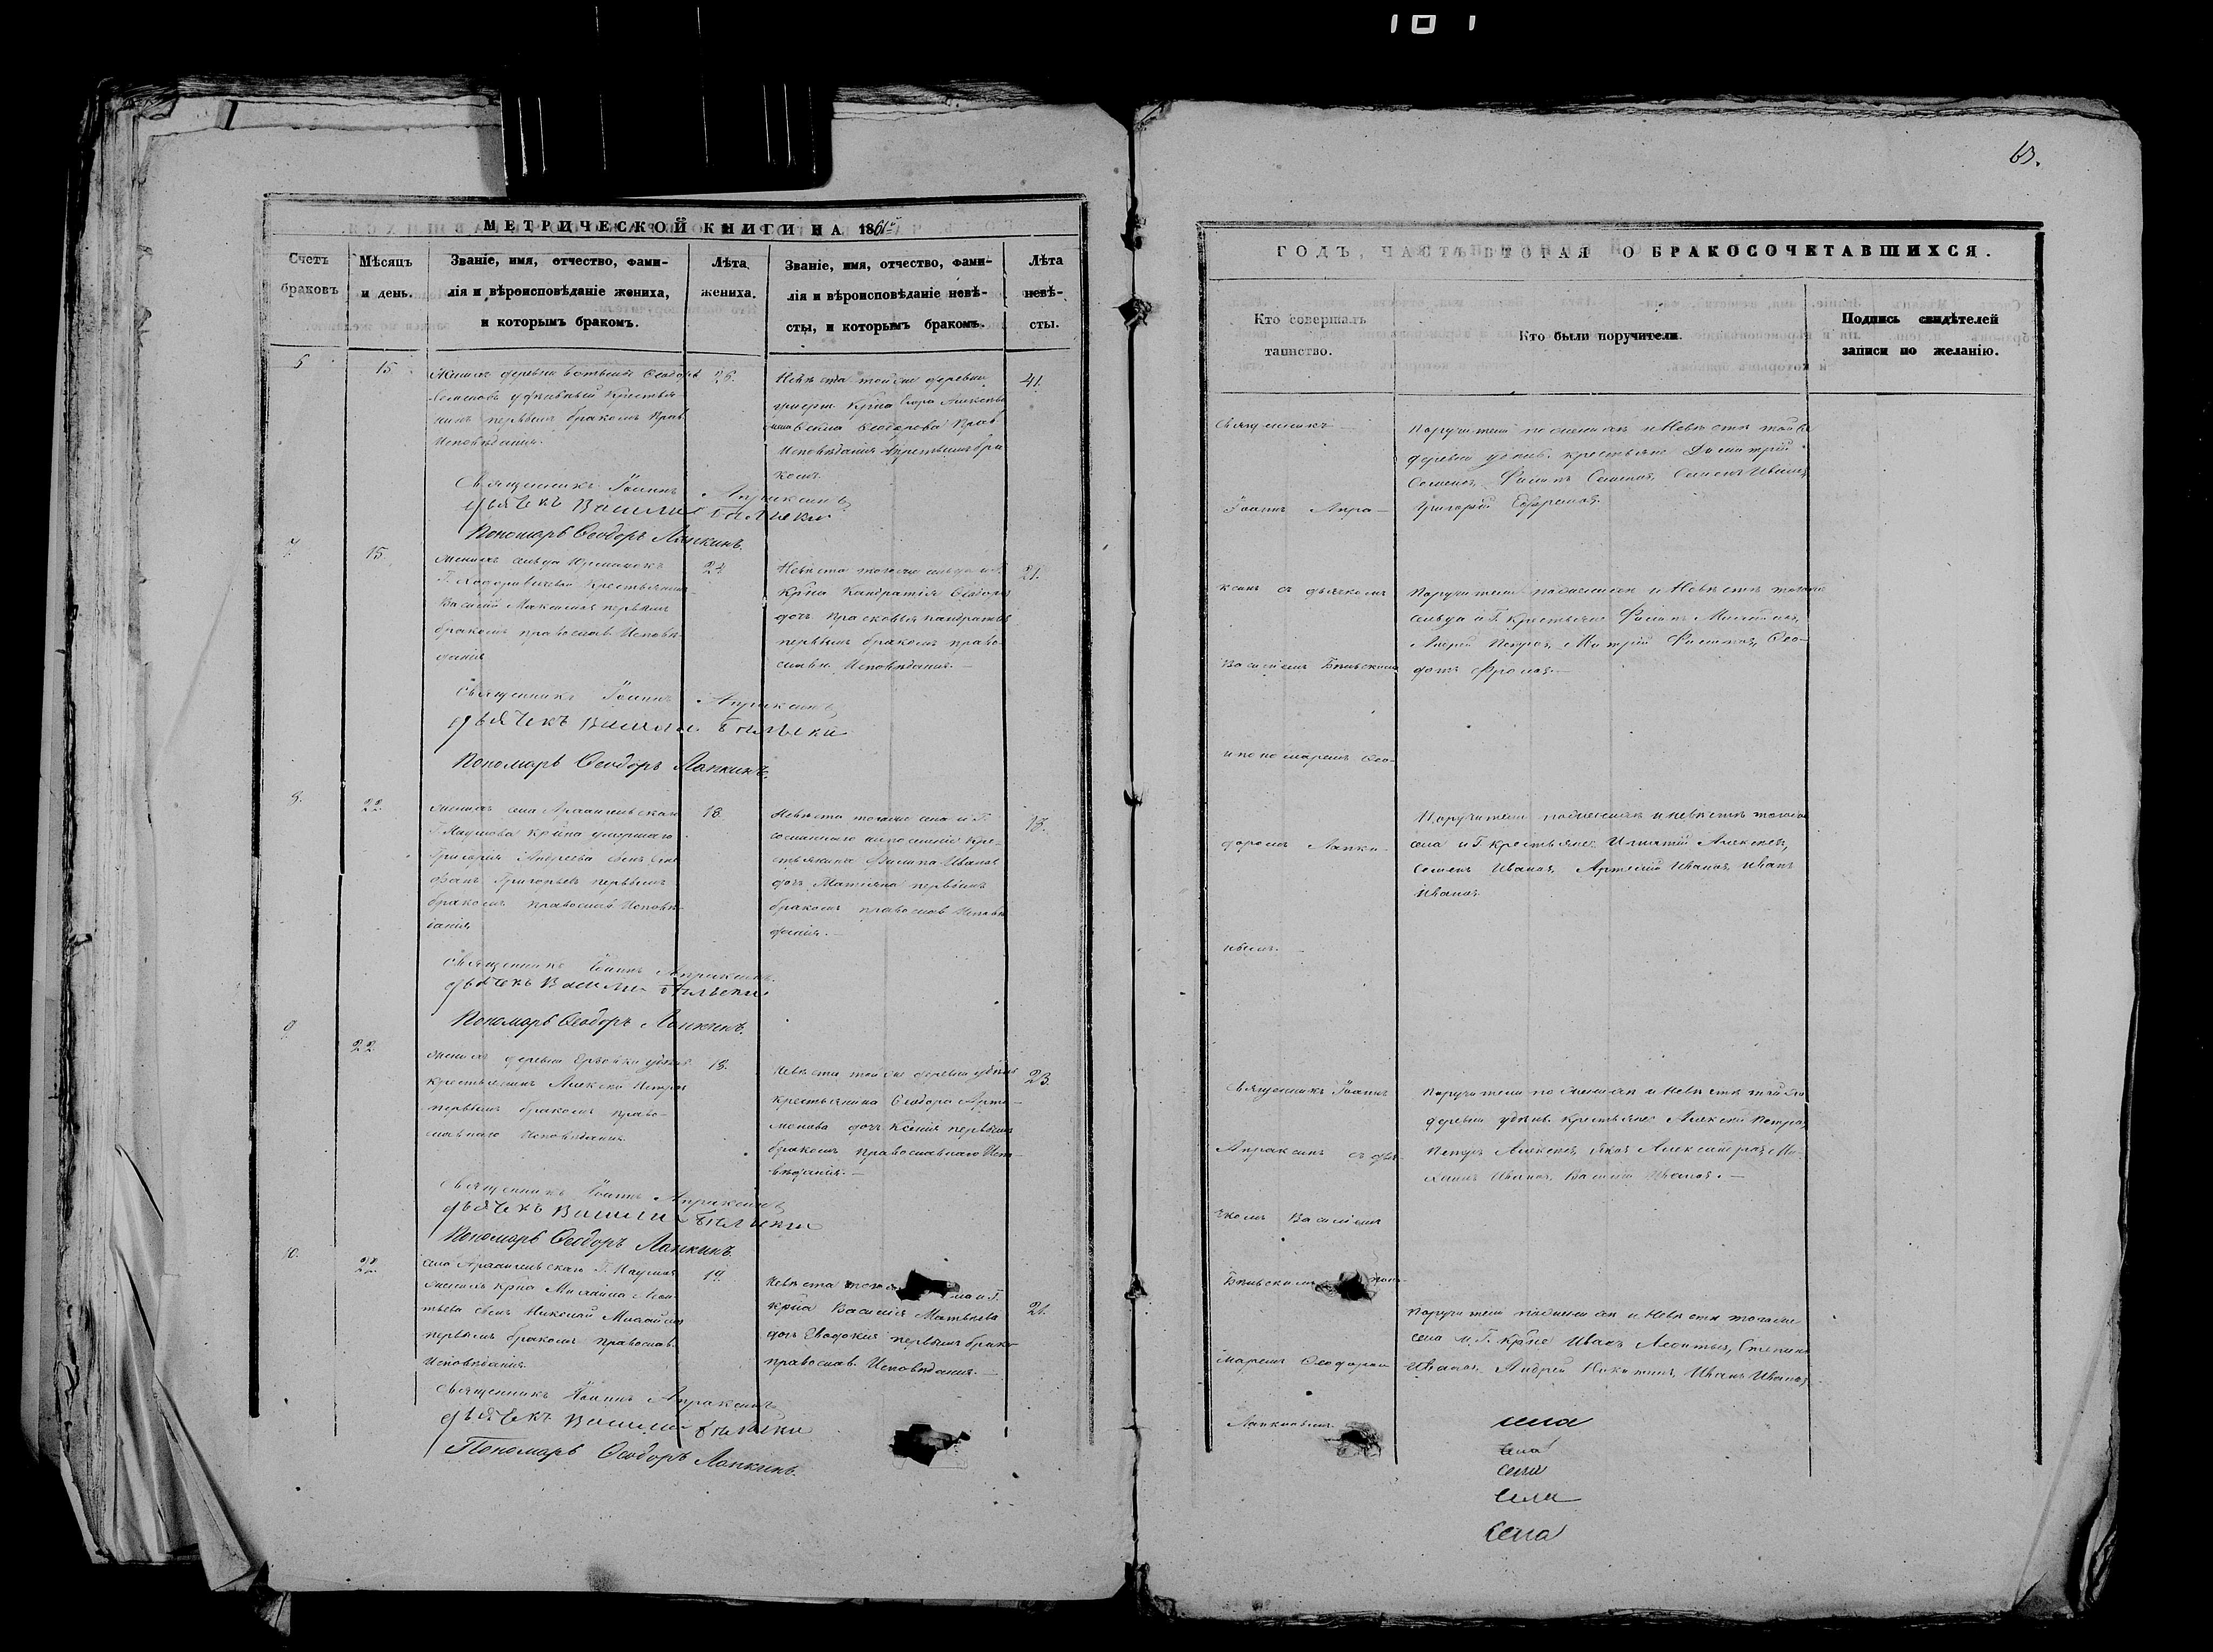 63.
МЕТРИЧЕСКОЙ КНИГИ НА 1861й
Счетъ браковъ
Мѣсяцъ и день.
Званіе, имя, отчество, фами-
лія и вѣроисповѣданіе жениха,
и которымъ бракомъ.
Лѣта жениха.
Званіе, имя, отчество, фами-
лія и вѣроисповѣданіе невѣ-
сты, и которымъ бракомъ.
Лѣта невѣ-
сты.
15
Женихъ деревни Ѳеодоръ
Семеновъ удѣльный крестья
нинъ первымъ бракомъ прав
Исповѣданія.
Невѣста той же деревни
умерш. Крна Егора
Ѳеодорова Прав
Исповѣданія бра
комъ.
41.
Священникъ Іоаннъ Апраксинъ
дьячекъ Василій Бѣльскій
Пономарь Ѳеодоръ Лапкинъ.
7.
15.
Женихъ сельца
Г. Крестьянинъ
Василій Максимовъ первымъ
бракомъ православ Исповѣ-
данія
Невѣста тогоже сельца и Г.
Крна Кандратія Ѳеодоро
дочь Прасковья Кандратьев
первымъ бракомъ право-
славн. Исповѣданія. —
21.
Священникъ Іоаннъ Апраксинъ
дьячекъ Василій Бѣльскій
Пономарь Ѳеодоръ Лапкинъ.
8.
22.
Женихъ села Архангельскаго
Г. Наумова Крна умершаго
Григорія Андреева сынъ Сте
фанъ Григорьевъ первымъ
бракомъ православ Исповѣ-
данія
18.
Невѣста тогоже села и Г.
Кре-
стьянина Филипа Иванов
дочь Матрена первымъ
бракомъ православ Исповѣ
данія. —
Священникъ Іоаннъ Апраксинъ
дьячекъ Василій Бѣльскій
Пономарь Ѳеодоръ Лапкинъ.
9.
22.
Женихъ деревни Ерзовки удѣльн.
крестьянинъ Алексѣй Петров
первымъ бракомъ право-
славнаго Исповѣданія.
18.
Невѣста той же деревни удѣльн
крестьянина Ѳеодора Арте-
монова дочь Ксенія первымъ
бракомъ православнаго Испо-
вѣданія. —
23.
Священникъ Іоаннъ Апраксинъ
дьячекъ Василій Бѣльскій
Пономарь Ѳеодоръ Лапкинъ.
10.
22.
села Архангельскаго Г. Наумова
женихъ Крна Михайла Леон-
тьева сынъ Николай Михайлов
первымъ бракомъ православ.
Исповѣданія.
19.
Невѣста тогоже села и Г.
Крна Василія Матвѣева
дочь Евдокія первымъ брако
православ. Исповѣданія. —
21.
Священникъ Іоаннъ Апраксинъ
дьячекъ Василій Бѣльскій
Пономарь Ѳеодоръ Лапкинъ.
ГОДЪ, ЧАСТЬ ВТОРАЯ О БРАКОСОЧЕТАВШИХСЯ.
Кто совершалъ
таинство.
Кто были поручители.
Подпись свидѣтелей
записи по желанію.
Священникъ
Іоаннъ Апра-
ксинъ съ дьячкомъ
Василіемъ Бѣльскимъ
и пономаремъ Ѳео-
доромъ Лапки-
нымъ. —
Поручители по женихѣ и Невѣстѣ той же
деревни удѣльн. крестьяне Димитрій
Семеновъ, Филипъ Семеновъ, Семенъ Ивановъ,
Григорій Ефремовъ.
Поручители по женихѣ и Невѣстѣ тогоже
сельца и Г. Крестьяне Филипъ Михайловъ,
Андрей Петровъ, Филиповъ, Ѳео-
дотъ Фроловъ. —
Поручители по женихѣ и невѣстѣ тогоже
села и Г. крестьяне Игнатій Алексѣевъ,
Семенъ Ивановъ, Артемій Ивановъ, Иванъ
Ивановъ.
Священникъ Іоаннъ
Апраксинъ съ дья-
чкомъ Василіемъ
Бѣльскимъ поно-
маремъ Ѳеодоромъ
Лапкинымъ.
Поручители по женихѣ и Невѣстѣ той же
деревни удѣльн. крестьяне Алексѣй Петровъ,
Петръ Алексѣевъ, Яковъ Александровъ, Ми-
хаилъ Ивановъ, Василій Ивановъ. —
Поручители по женихѣ и Невѣстѣ тогоже
села и Г. Крне Иванъ Леонтьевъ, Степанъ
Ивановъ, Андрей Никитинъ, Иванъ Ивановъ
села
села
села
села
села